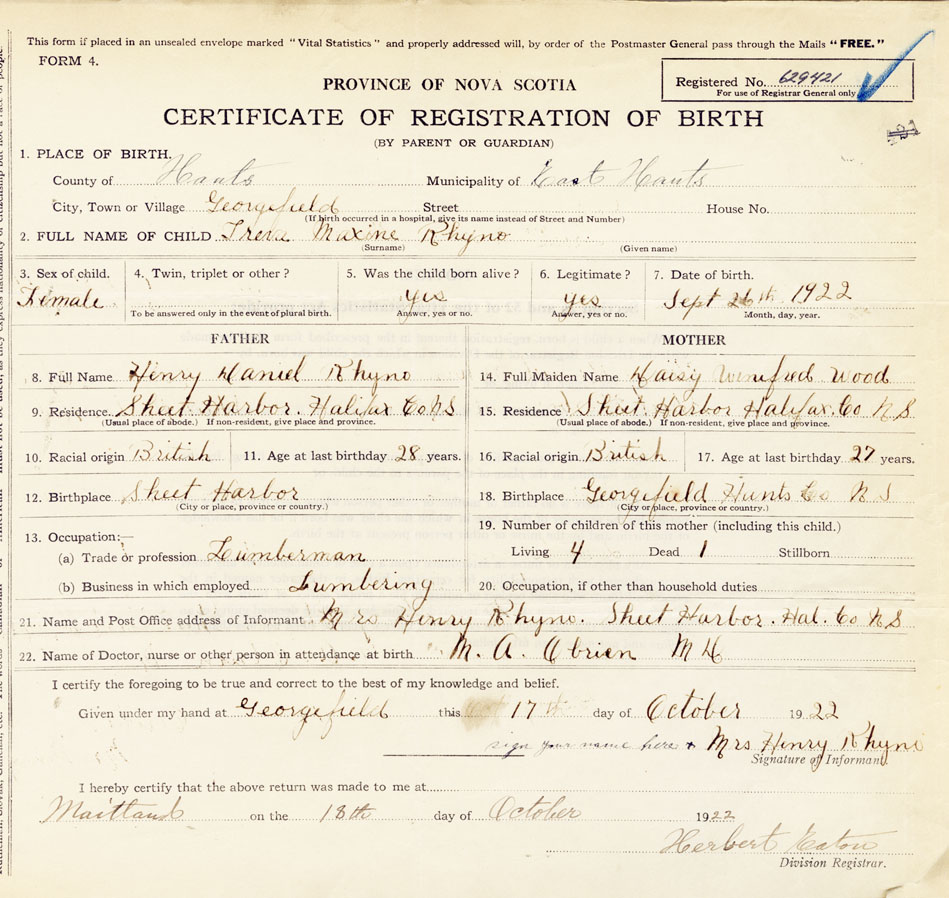 This form if placed in an unsealed envelope marked "Vital Statistics" and properly addressed will, by order of the Postmaster General pass through the Mails "FREE."
FORM 4.
Registered No. 629421
For use of Registrar General only
PROVINCE OF NOVA SCOTIA
CERTIFICATE OF REGISTRATION OF BIRTH
(BY PARENT OR GUARDIAN)
1. PLACE OF BIRTH.
County of Hants Municipality of East Hants
City, Town or Village Georgefield Street House No.
(If birth occurred in a hospital, give its name instead of Street and Number)
2. FULL NAME OF CHILD Treva Maxine Rhyno
(Surname) (Given name)
3. Sex of child. 4. Twin, triplet or other? 5. Was the child born alive? 6. Legitimate? 7. Date of birth.
Female yes yes Sept 26th 1922
To be answered only in the event of plural birth. Answer, yes or no. Answer, yes or no. Month, day, year.
FATHER MOTHER
8. Full Name Henry Daniel Rhyno 14. Full Maiden Name Daisy Winefred Wood
9. Residence Sheet Harbor. Halifax Co NS 15. Residence Sheet Harbor Halifax Co N S
(Usual place of abode.) If non-resident, give place and province. (Usual place of abode.) If non-resident, give place and province.
10. Racial origin British 11. Age at last birthday 28 years. 16. Racial origin British 17. Age at last birthday 27 years.
12. Birthplace Sheet Harbor 18. Birthplace Georgefield Hunts Co N S
(City or place, province or country.) (City or place, province or country.)
13. Occupation:— 19. Number of children of this mother (including this child.)
(a) Trade or profession Lumberman Living 4 Dead 1 Stillborn
(b) Business in which employed Lumbering 20. Occupation, if other than household duties
21. Name and Post Office address of Informant Mrs Henry Rhyno. Sheet Harbor. Hal. Co N S
22. Name of Doctor, nurse or other person in attendance at birth M. A. Obrien M D
I certify the foregoing to be true and correct to the best of my knowledge and belief.
Given under my hand at Georgefield this 17th day of October 1922
sign your name here Mrs Henry Rhyno
Signature of Informant.
I hereby certify that the above return was made to me at
Maitland on the 18th day of October 1922
Herbert Eaton
Division Registrar.